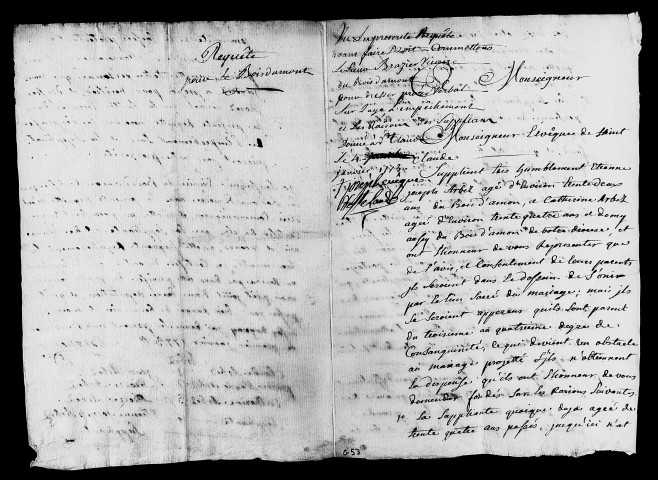 Requête
pour le Boisdamont
Vu la presente Requête
avant faire Droit Commettons
le Sieur Brazier Vicaire
du boisdamont
pour dresser procès verbal
Sur l'age L'empêchement
et les Raisons des Supplians
Donné à St Claude
Le 4
janvier 1773
Monseigneur
Monseigneur L'evêque de Saint
Claude
Supplient tres humblement Etienne
joseph Arbel agé d'Environ trente deux
ans du bois d'amon, et Catherine Arbel
agée d'Environ trente quatre ans et demy
aussy du Bois d'amon de votre diocese, et
ont l'honneur de vous Representer que
de l'avis, et Consentement de leurs parents
ils seroient dans le dessein de s'unir
par le lien Sacré du mariage; mais ils
se seroient apperçus qu'ils sont parent
du troisieme au quatrieme degré de
Consanguinité, ce qui devient un obstacle
au mariage projetté s'ils n'obtiennent
la dispense qu'ils ont l'honneur de vous
demander fondés sur les Raisons suivantes
1e La Suppliante quoique deja agée de
trente quatre ans passés, jusqu'ici n'at
G-53